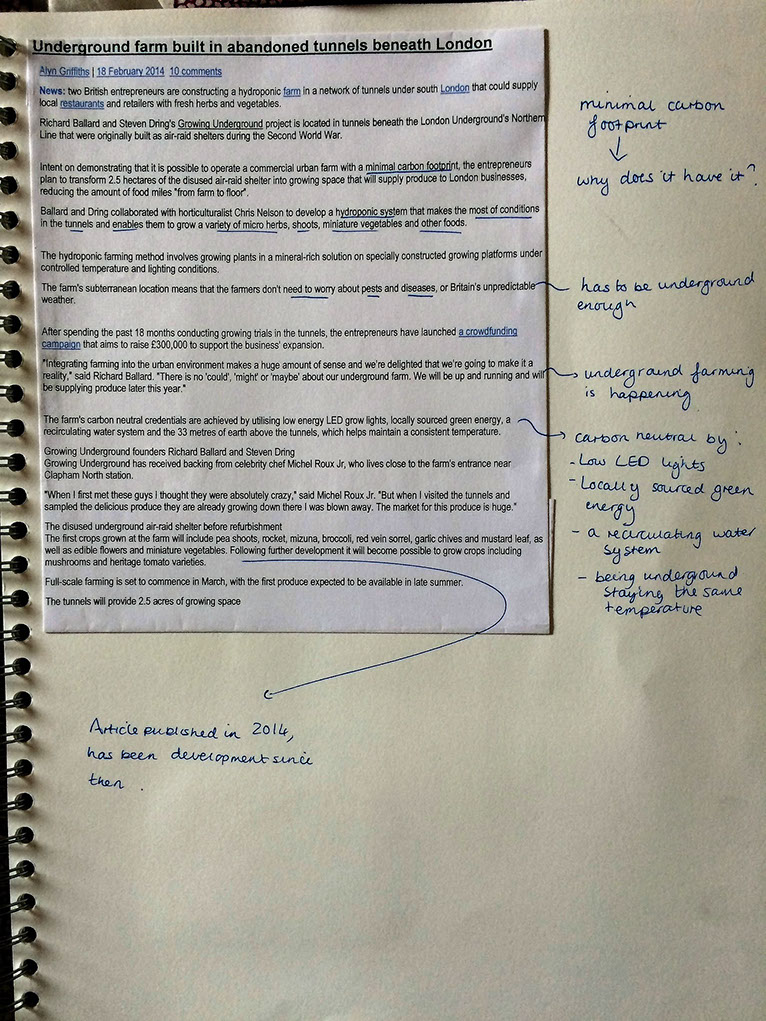 Underground farm built in abandoned tunnels beneath London
Alyn Griffiths | 18 February 2014 10 comments
News: two British entrepreneurs are constructing a hydroponic farm in a network of tunnels under south London that could supply
local restaurants and retailers with fresh herbs and vegetables.
Richard Ballard and Steven Dring's Growing Underground project is located in tunnels beneath the London Underground's Northern
Line that were originally built as air-raid shelters during the Second World War.
Intent on demonstrating that it is possible to operate a commercial urban farm with a minimal carbon footprint, the entrepreneurs
plan to transform 2.5 hectares of the disused air-raid shelter into growing space that will supply produce to London businesses,
reducing the amount of food miles "from farm to floor".
Ballard and Dring collaborated with horticulturalist Chris Nelson to develop a hydroponic system that makes the most of conditions
in the tunnels and enables them to grow a variety of micro herbs, shoots, miniature vegetables and other foods.
The hydroponic farming method involves growing plants in a mineral-rich solution on specially constructed growing platforms under
controlled temperature and lighting conditions.
The farm's subterranean location means that the farmers don't need to worry about pests and diseases, or Britain's unpredictable
weather.
After spending the past 18 months conducting growing trials in the tunnels, the entrepreneurs have launched a crowdfunding
campaign that aims to raise £300,000 to support the business' expansion.
"Integrating farming into the urban environment makes a huge amount of sense and we're delighted that we're going to make it a
reality," said Richard Ballard. "There is no 'could', 'might' or 'maybe' about our underground farm. We will be up and running and will
be supplying produce later this year."
The farm's carbon neutral credentials are achieved by utilising low energy LED grow lights, locally sourced green energy, a
recirculating water system and the 33 metres of earth above the tunnels, which helps maintain a consistent temperature.
Growing Underground founders Richard Ballard and Steven Dring
Growing Underground has received backing from celebrity chef Michel Roux Jr, who lives close to the farm's entrance near
Clapham North station.
"When I first met these guys I thought they were absolutely crazy," said Michel Roux Jr. "But when I visited the tunnels and
sampled the delicious produce they are already growing down there I was blown away. The market for this produce is huge."
The disused underground air-raid shelter before refurbishment
The first crops grown at the farm will include pea shoots, rocket, mizuna, broccoli, red vein sorrel, garlic chives and mustard leaf, as
well as edible flowers and miniature vegetables. Following further development it will become possible to grow crops including
mushrooms and heritage tomato varieties.
Full-scale farming is set to commence in March, with the first produce expected to be available in late summer.
The tunnels will provide 2.5 acres of growing space
minimal carbon
footprint
why does it have it?
has to be underground
enough
underground farming
is happening
carbon neutral by:
- Low LED lights
- Locally sourced green
energy
- a recirculating water
system
- being underground
staying the same
temperature
Article published in 2014,
has been development since
then.